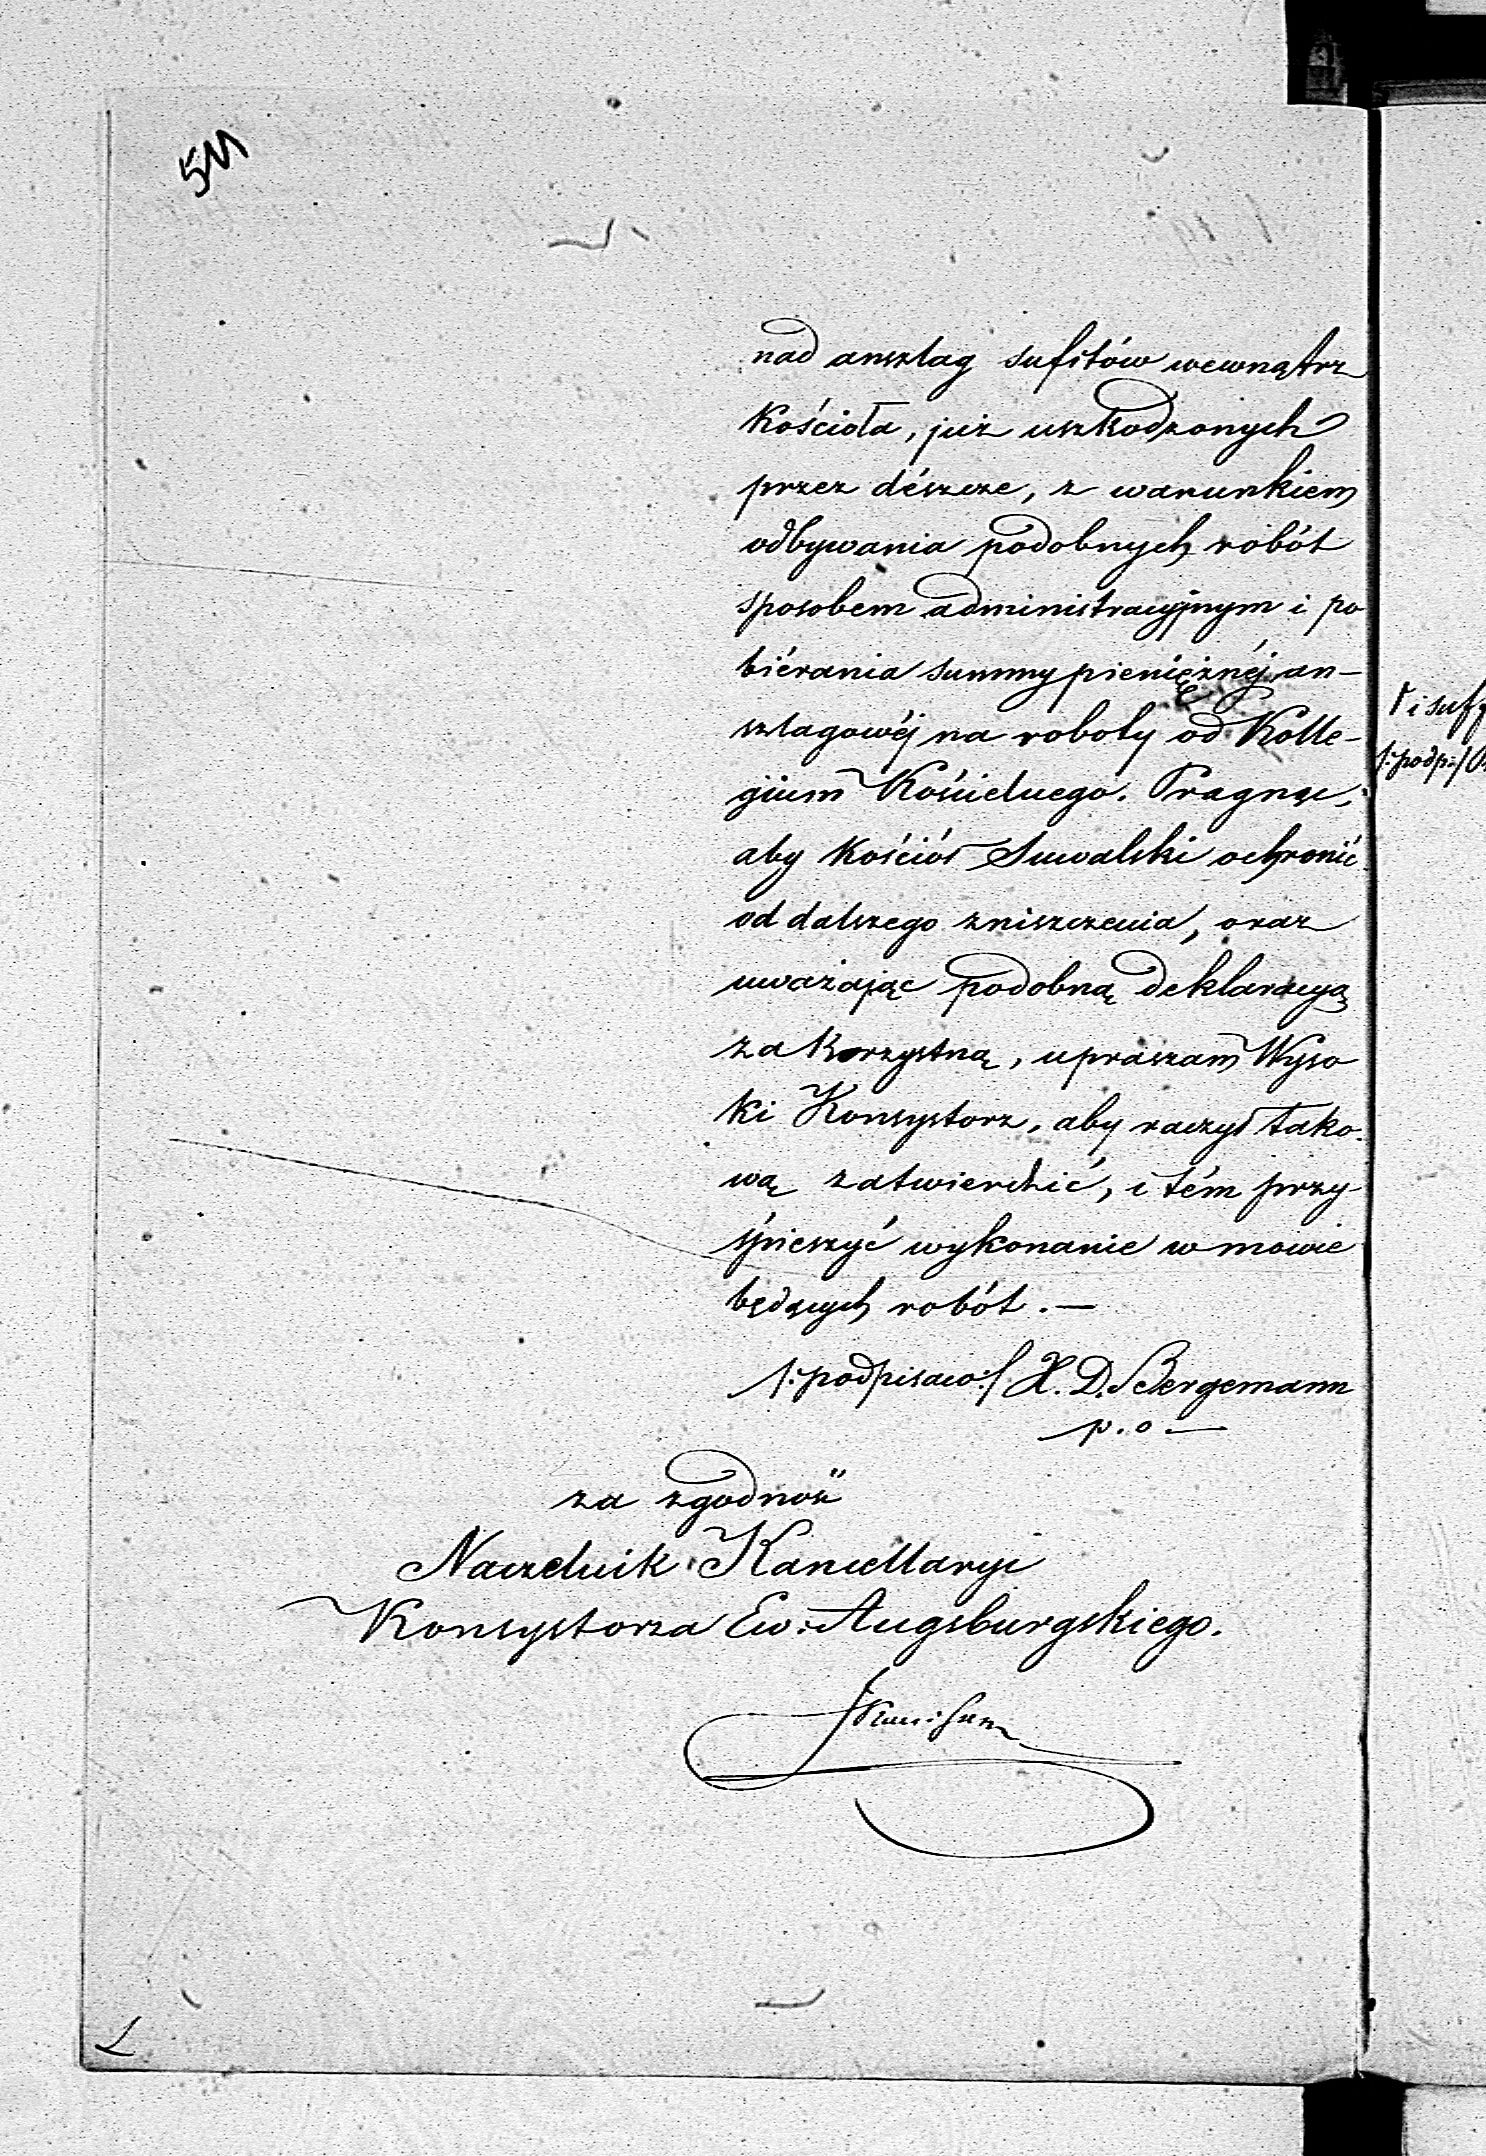 nad anszlag sufitów wewnątrz
Kościoła, już uszkodzonych
przez dészcze, z warunkiem
odbywania podobnych robót
sposobem administracyjnym i po
biérania summy pieniężnéj an-
szlagowéj na roboty od Kolle-
gium Kościelnego. Pragnąc,
aby Kościół Suwalski ochronić
od dalszego zniszczenia, oraz
uważając podobną deklaracyą
za Korzystną, upraszam Wyso
ki Konsystorz, aby raczył tako-
wą zatwierdzić, i tém przy-
śpieszyć wykonanie w mowie
będących robót. —
/:podpisano:/ X. D. Bergemann
p. o —
za zgodność
Naczelnik Kancellaryi
Konsystorza Ew: Augsburgskiego.
i suf
/:podp:/